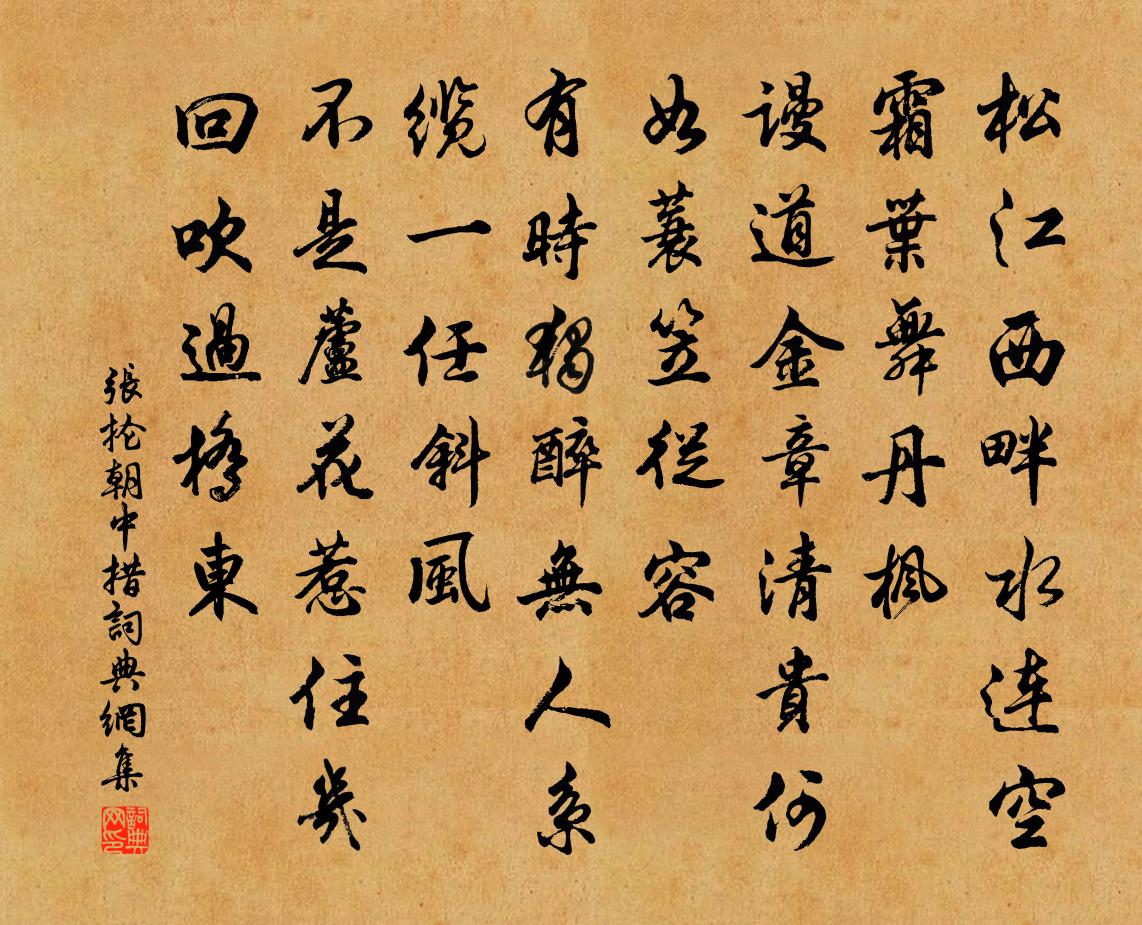 松江西畔水連空
霜葉舞丹楓
謾道金章清貴何
如蓑笠從容
有時獨醉無人系
纜一任斜風
不是蘆花惹住幾
回吹過橋東
張掄朝中措詞典網集
詞典
网印